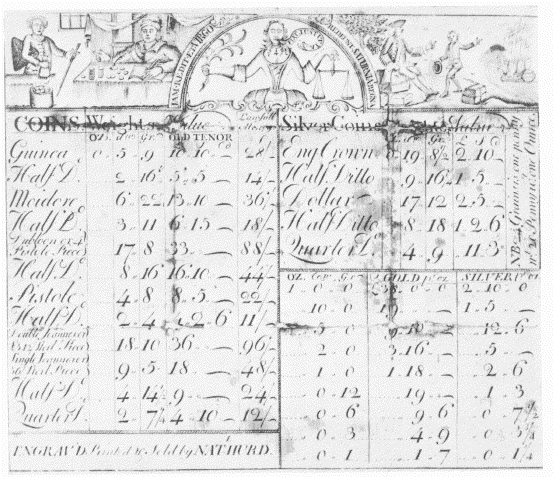 JAM REDIT ET VIRGO
REDEUNT SATURNIA REGNA
COINS Weights Value Lawfull Money
OZ. dw. Gr. OLD TENOR
Guinea 0 5 9 10 10 28/
Half Do. 2 16 5 5 14/
Moidore 6 22 13 10 36/
Half Do. 3 11 6 15 18/
Dubloon or 4
Pistole Piece 17 8 33 88/
Half Do. 8 16 16 10 44/
Pistole 4 8 8 5 22/
Half Do. 2 4 2 6 11/
Double Joannes
or 72 Shil. Piece 18 10 36 96/
Single Joannes
36 Shil. Piece 9 5 18 48/
Half Do. 4 14 9 24/
Quarter Do. 2 7 1/4 4 10 12/
ENGRAV'D Printed & Sold by NATH. HURD.
Silver Coins
Eng. Crown 0 19 8 1/2 2 10
Half Ditto 9 16 1 5
Dollar 17 12 2 5
Half Ditto 8 18 1 2 6
Quarter Do. 4 9 11 3
NB. 24 Grains is one penny
wt. 20 Pennys one Ounce
OZ. dw. Gr. GOLD pr. oz. SILVER pr. oz.
38 0 0 2 10 0
10 0 19 1 5
5 0 9 10 12 6
2 0 3 16 5
1 0 1 18 2 6
0 12 19 1 3
0 6 9 6 0 7 1/2
0 3 4 9 0 3 3/4
0 1 1 7 0 1 1/4